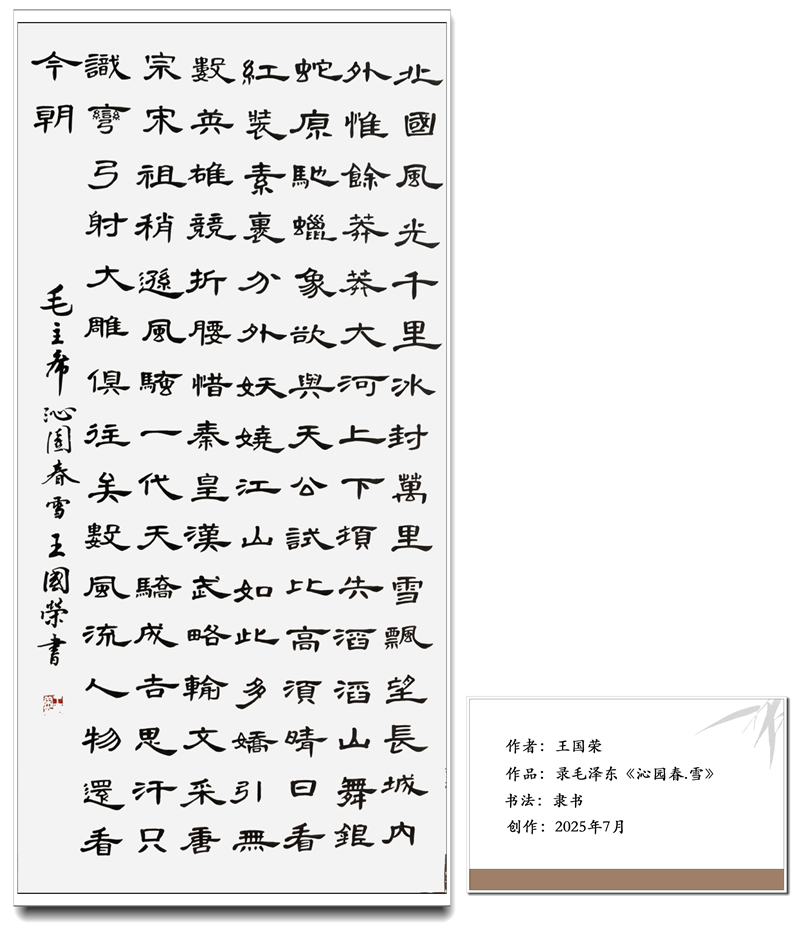 北國風光千里冰封萬里雪飄望長城內
外惟餘莽莽大河上下頓失滔滔山舞銀
蛇原馳蠟象欲與天公試比高須晴日看
紅裝素裹分外妖嬈江山如此多嬌引無
數英雄競折腰惜秦皇漢武略輸文采唐
宗宋祖稍遜風騷一代天驕成吉思汗只
識彎弓射大雕俱往矣數風流人物還看
今朝
毛主席沁園春雪王國榮書
作者：王国荣
作品：录毛泽东《沁园春.雪》
书法：隶书
创作：2025年7月